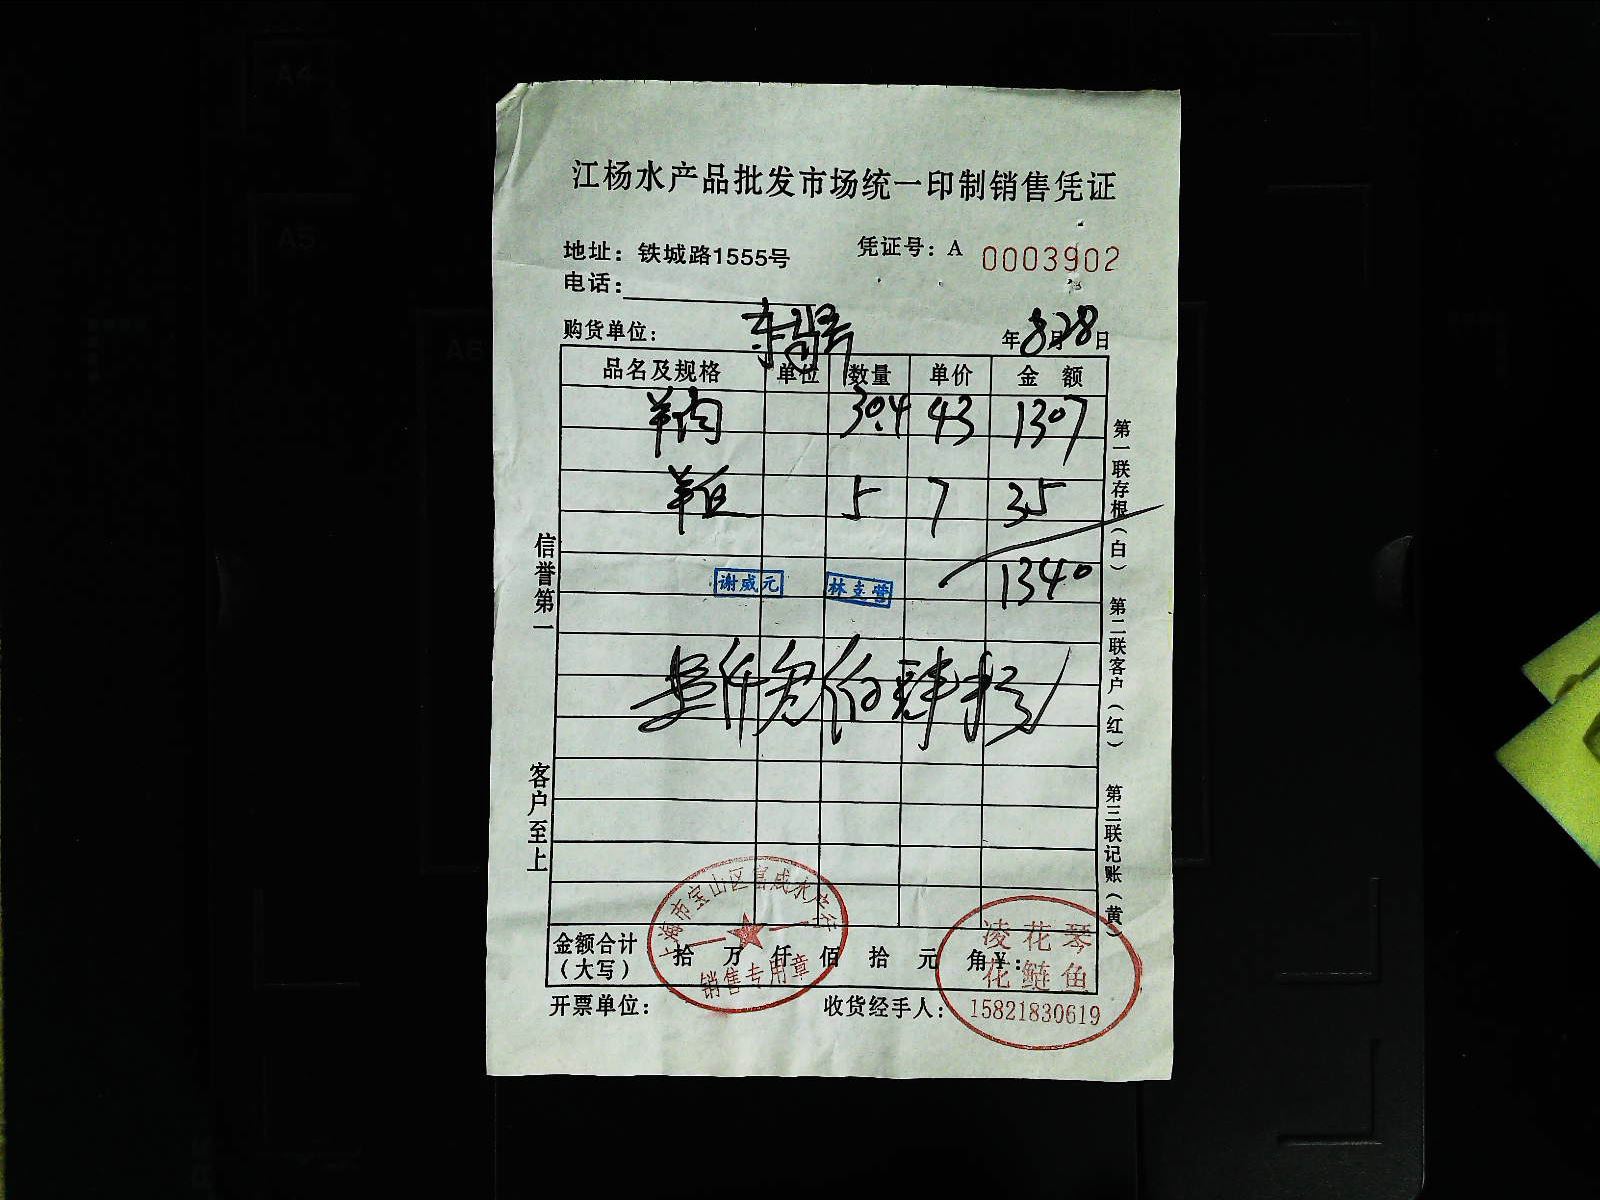 江杨水产品批发市场统一印制销售凭证
地址：铁城路1555号
凭证号：A 0003902
电话：
购货单位：
年8月28日
品名及规格 单位 数量 单价 金额
羊肉 30.4 43 1307
羊 5 7 35
1340
谢威元 林志营
壹仟叁佰肆拾
金额合计（大写） 拾 万 仟 佰 拾 元 角 ¥：
开票单位： 收货经手人：
信誉第一
客户至上
第一联存根（白） 第二联客户（红） 第三联记账（黄）
上海市宝山区富成水产行
销售专用章
凌花琴
花鲢鱼
15821830619